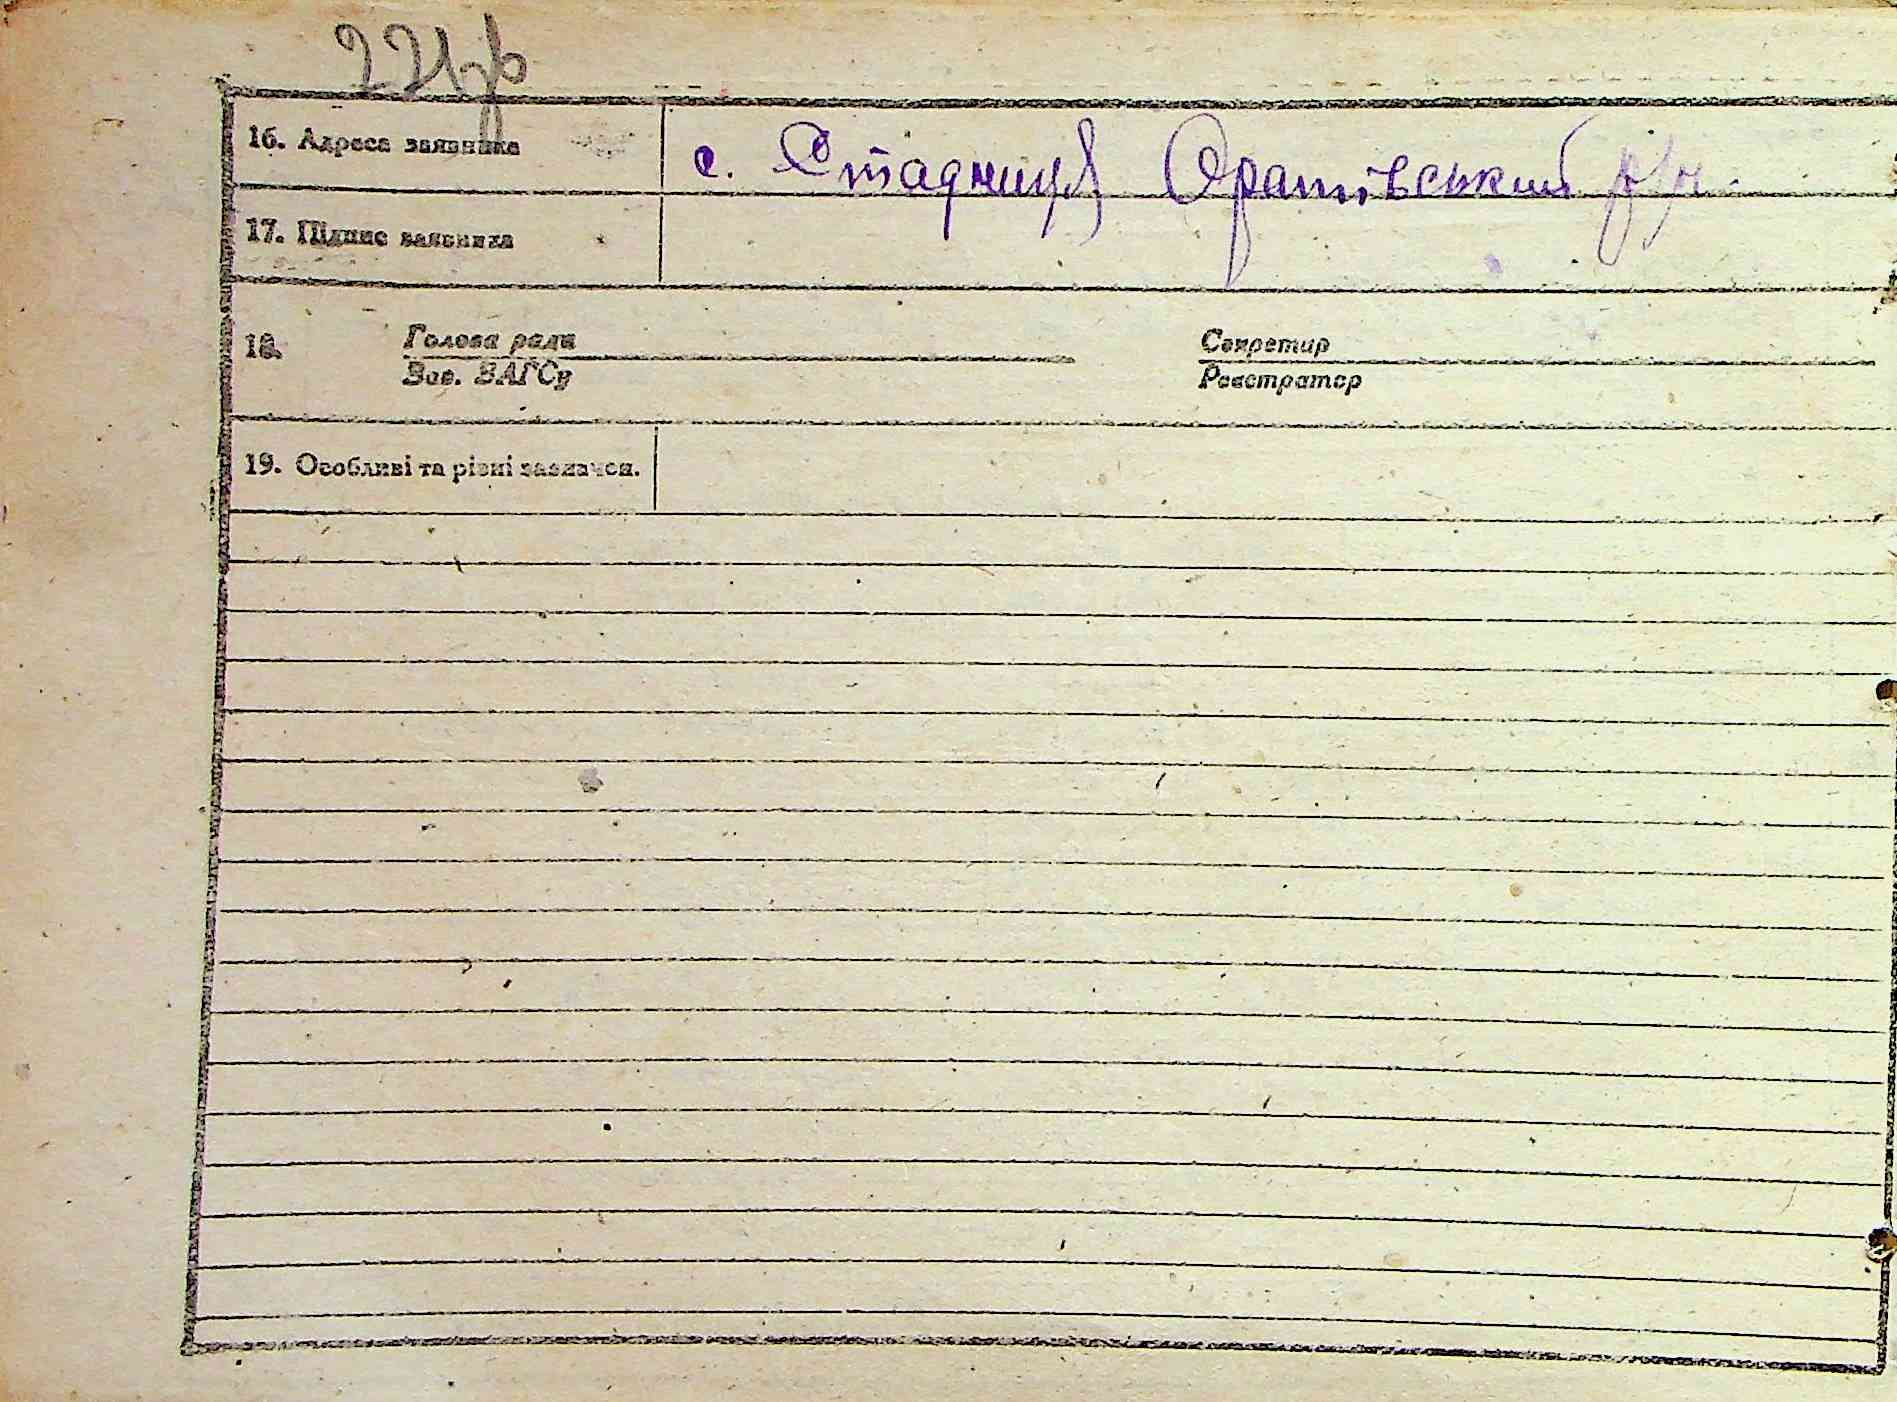 221зв
16. Адреса заявника
с. Стадниця Оратівський р/н.
17. Підпис заявника
18.
Голова ради
Зав. ЗАГСу
Секретар
Реєстратор
19. Особливі та різні зазначен.